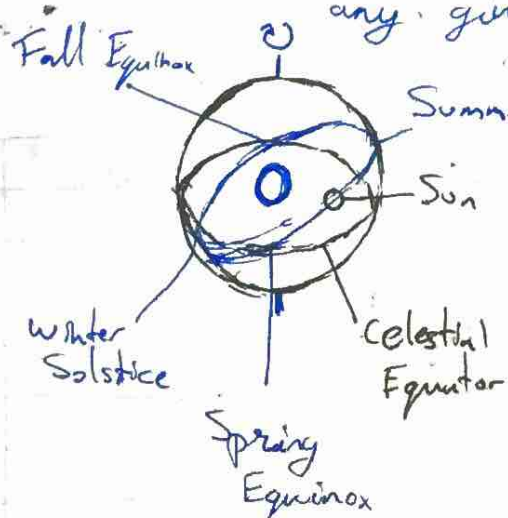 any.
Fall Equinox
Summ
Sun
Winter
Solstice
Celestial
Equator
Spring
Equinox